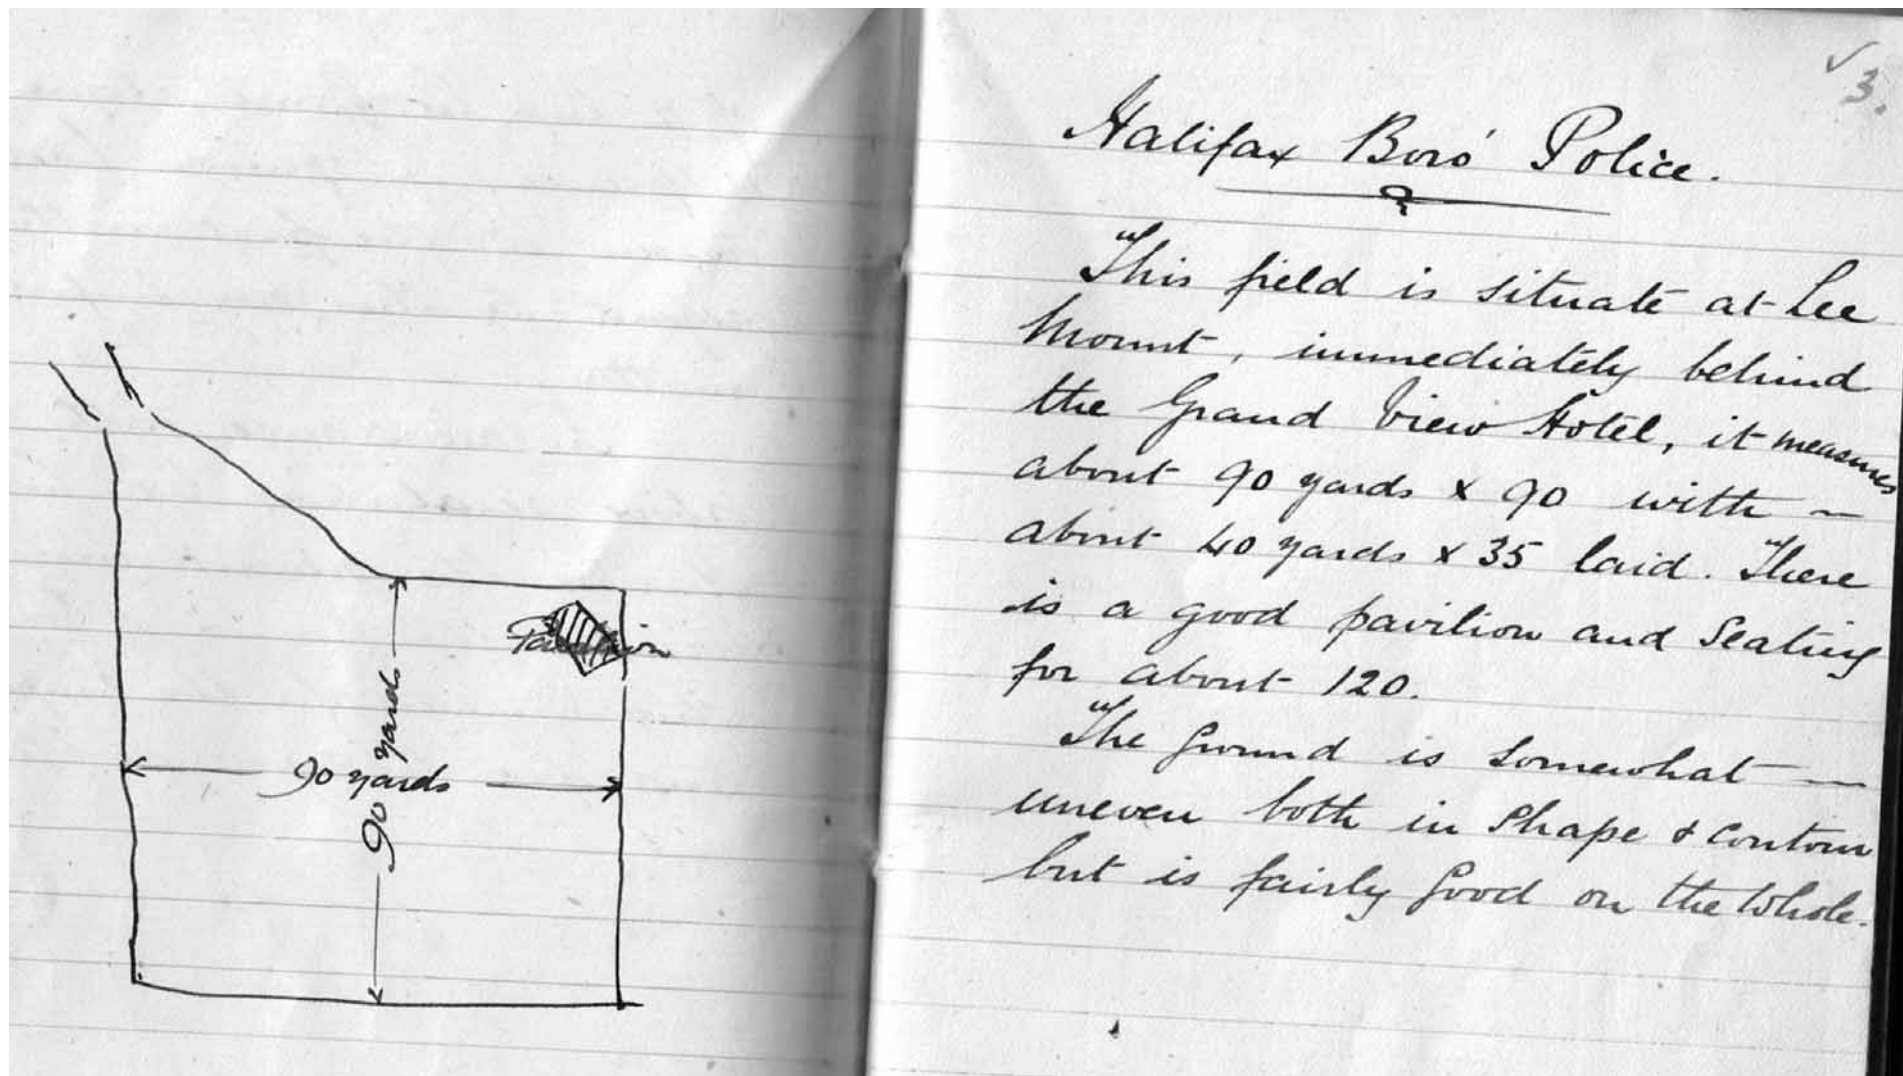 Pavilion
90 yards
90 yards
✓ 3.
Halifax Boro' Police.
This field is situate at Lee
Mount, immediately behind
the Grand View Hotel, it measures
about 90 yards x 90 with —
about 40 yards x 35 laid. There
is a good pavilion and Seating
for about 120.
The ground is somewhat —
uneven both in Shape & contour
but is fairly good on the whole.